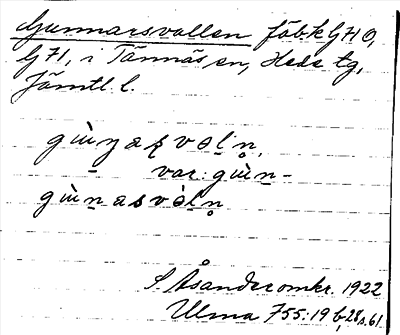 Gunnarsvallen fäb.k G 71 O,
G 71, i Tännäs sn, Hede tg,
Jämtl. l.
gùŋaʂvəl̥n̥,
var: gùn-
gùnasvə̀ln̥
S. Åsander omkr. 1922
Ulma 755:19 b, 28 s. 61